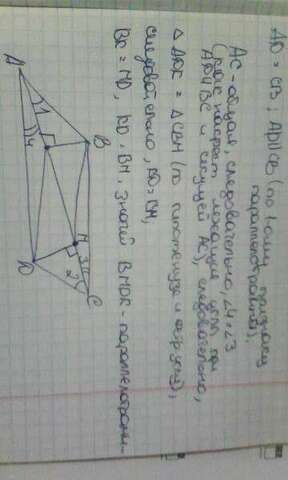 AD = CB; AD||CB (по 1-ому признаку
параллелограмма).
AC - общая, следовательно, ∠4 = ∠3
(как накрест лежащие углы при
AD||BC и секущей AC), следовательно,
△ADK = △CBM (по гипотенузе и остр. углу),
следовательно, KD = BM,
BK = MD, KD, BM, значит BMDK - параллелограмм
A
B
C
D
M
1
4
3
2